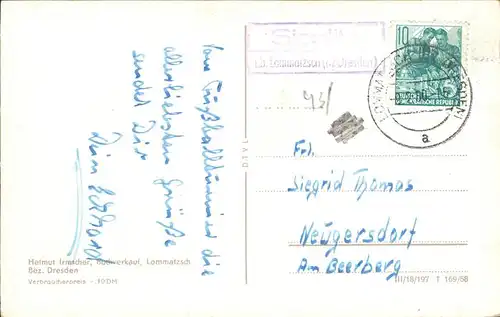 Vom Fußballturnier die
allerliebsten Grüße
sendet Dir
Dein Eckhard
Helmut Irmscher, Buchverkauf, Lommatzsch
Bez. Dresden
Verbraucherpreis - 10 DM
10
DEUTSCHE
DEMOKRATISCHE REPUBLIK
a
Frl.
Siegrid Thomas
Neugersdorf
Am Beerberg
III/18/197 T 169/68